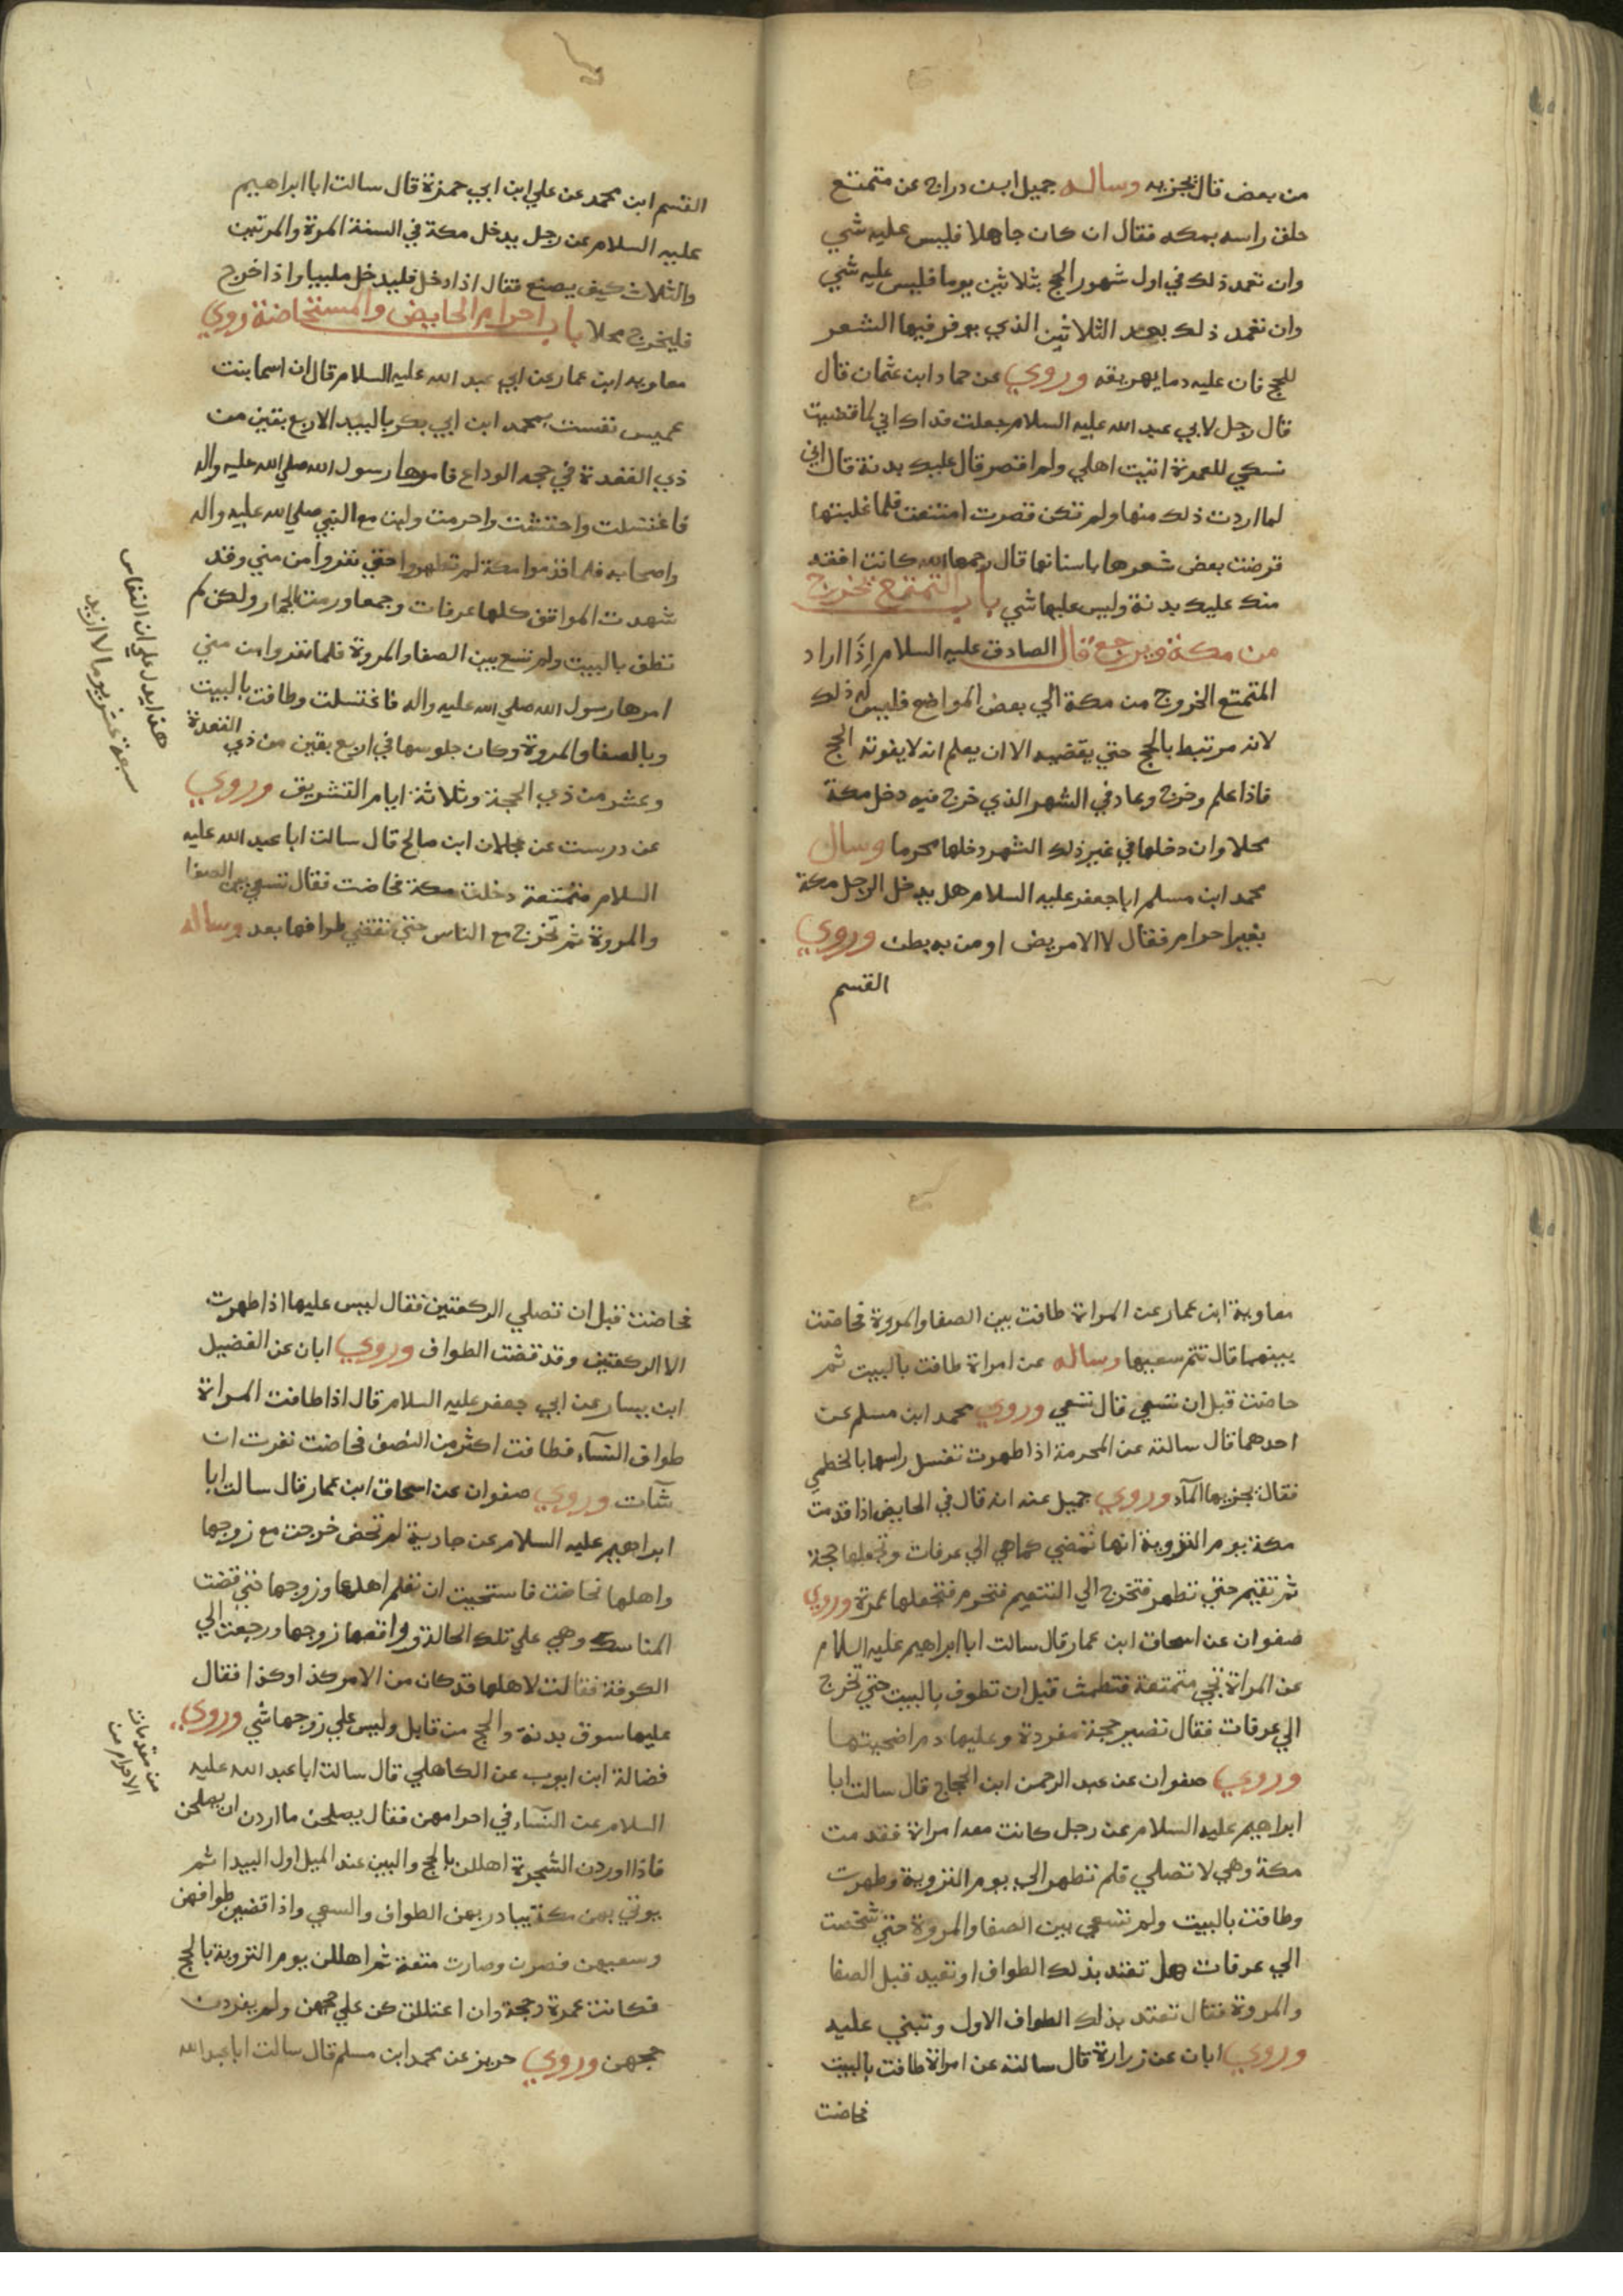 من بعض قال يجزيه وساله جميل ابن دراج عن متمتع
حلق راسه بمكه فقال ان كان جاهلا فليس عليه شي
وان تعمد ذلك في اول شهور الحج بثلاثين يوما فليس عليه شي
وان تعمد ذلك بعد الثلاثين الذي يوفر فيها الشعر
للحج فان عليه دما يهريقه وروي عن حماد ابن عثمان قال
قال رجل لابي عبد الله عليه السلام جعلت فداك اني لما قضيت
نسكي للعمرة اتيت اهلي ولم اقصر قال عليك بدنة قال اني
لما اردت ذلك منها ولم تكن قصرت امتنعت فلما غلبتها
قرضت بعض شعرها باسنانها قال رحمها الله كانت افقه
منك عليك بدنة وليس عليها شي باب التمتع يخرج
من مكة ويرجع قال الصادق عليه السلام اذا اراد
المتمتع الخروج من مكة الي بعض المواضع فليس له ذلك
لانه مرتبط بالحج حتي يقضيه الا ان يعلم انه لا يفوته الحج
فاذا علم وخرج وعاد في الشهر الذي خرج فيه دخل مكة
محلا وان دخلها في غير ذلك الشهر دخلها محرما وسال
محمد ابن مسلم ابا جعفر عليه السلام هل يدخل الرجل مكة
بغير احرام فقال لا الا مريض او من به بطن وروي
القسم
القسم ابن محمد عن علي ابن ابي حمزة قال سالت ابا ابراهيم
عليه السلام عن رجل يدخل مكة في السنة المرة والمرتين
والثلاث كيف يصنع فقال اذا دخل فليدخل ملبيا واذا خرج
فليخرج محلا باب احرام الحايض والمستحاضة روي
معاويه ابن عمار عن ابي عبد الله عليه السلام قال ان اسما بنت
عميس نفست بمحمد ابن ابي بكر بالبيدا لاربع بقين من
ذي القعدة في حجه الوداع فامرها رسول الله صلي الله عليه واله
فاغتسلت واحتشت واحرمت ولبت مع النبي صلي الله عليه واله
واصحابه فلما قدموا مكة لم تطهر حتي نفروا من مني وقد
شهدت المواقف كلها عرفات وجمعا ورمت الجمار ولكن لم
تطف بالبيت ولم تسع بين الصفا والمروة فلما نفروا من مني
امرها رسول الله صلي الله عليه واله فاغتسلت وطافت بالبيت
وبالصفا والمروة وكان جلوسها في اربع بقين من ذي القعدة
وعشر من ذي الحجة وثلاثة ايام التشريق وروي
عن درست عن عجلان ابن صالح قال سالت ابا عبد الله عليه
السلام متمتعة دخلت مكة فحاضت فقال تسعي بين الصفا
والمروة ثم تخرج مع الناس حتي تقضي طوافها بعد وساله
هذا يدل علي ان النفاس
سبعة عشر يوما لا ازيد
معاوية ابن عمار عن المراة طافت بين الصفا والمروة فحاضت
بينهما قال تتم سعيها وساله عن امراة طافت بالبيت ثم
حاضت قبل ان تسعي قال تسعي وروي محمد ابن مسلم عن
احدهما قال سالته عن المحرمة اذا طهرت تغسل راسها بالخطمي
فقال يجزيها المآء وروي جميل عنه انه قال في الحايض اذا قدمت
مكة يوم التروية انها تمضي كما هي الي عرفات وتجعلها حجة
ثم تقيم حتي تطهر فتخرج الي التنعيم فتحرم فتجعلها عمرة وروي
صفوان عن اسحاق ابن عمار قال سالت ابا ابراهيم عليه السلام
عن المراة تجي متمتعة فتطمث قبل ان تطوف بالبيت حتي تخرج
الي عرفات فقال تصير حجة مفردة وعليها دم اضحيتها
وروي صفوان عن عبد الرحمن ابن الحجاج قال سالت ابا
ابراهيم عليه السلام عن رجل كانت معه امراة فقدمت
مكة وهي لا تصلي فلم تطهر الي يوم التروية وطهرت
وطافت بالبيت ولم تسعي بين الصفا والمروة حتي شخصت
الي عرفات هل تعتد بذلك الطواف او تعيد قبل الصفا
والمروة فقال تعتد بذلك الطواف الاول وتبني عليه
وروي ابان عن زرارة قال سالته عن امراة طافت بالبيت
فحاضت
فحاضت قبل ان تصلي الركعتين فقال ليس عليها اذا طهرت
الا الركعتين وقد قضت الطواف وروي ابان عن الفضيل
ابن يسار عن ابي جعفر عليه السلام قال اذا طافت المراة
طواف النسآء فطافت اكثر من النصف فحاضت نفرت ان
شآت وروي صفوان عن اسحاق ابن عمار قال سالت ابا
ابراهيم عليه السلام عن جارية لم تحض خرجت مع زوجها
واهلها فحاضت فاستحيت ان تعلم اهلها وزوجها حتي قضت
المناسك وهي علي تلك الحالة وواقعها زوجها ورجعت الي
الكوفة فقالت لاهلها قد كان من الامر كذا وكذا فقال
عليها سوق بدنة والحج من قابل وليس علي زوجها شي وروي
فضالة ابن ايوب عن الكاهلي قال سالت ابا عبد الله عليه
السلام عن النسآء في احرامهن فقال يصلحن ما اردن ان يصلحن
فاذا وردن الشجرة اهللن بالحج ولبين عند الميل اول البيدا ثم
يوتي بهن مكة يبادر بهن الطواف والسعي واذا قضين طوافهن
وسعيهن قصرن وصارت متعة ثم اهللن يوم التروية بالحج
فكانت عمرة وحجة وان اعتللن كن علي حجهن ولم يفردن
حجهن وروي حريز عن محمد ابن مسلم قال سالت ابا عبد الله
من مقدمات
الاحرام من